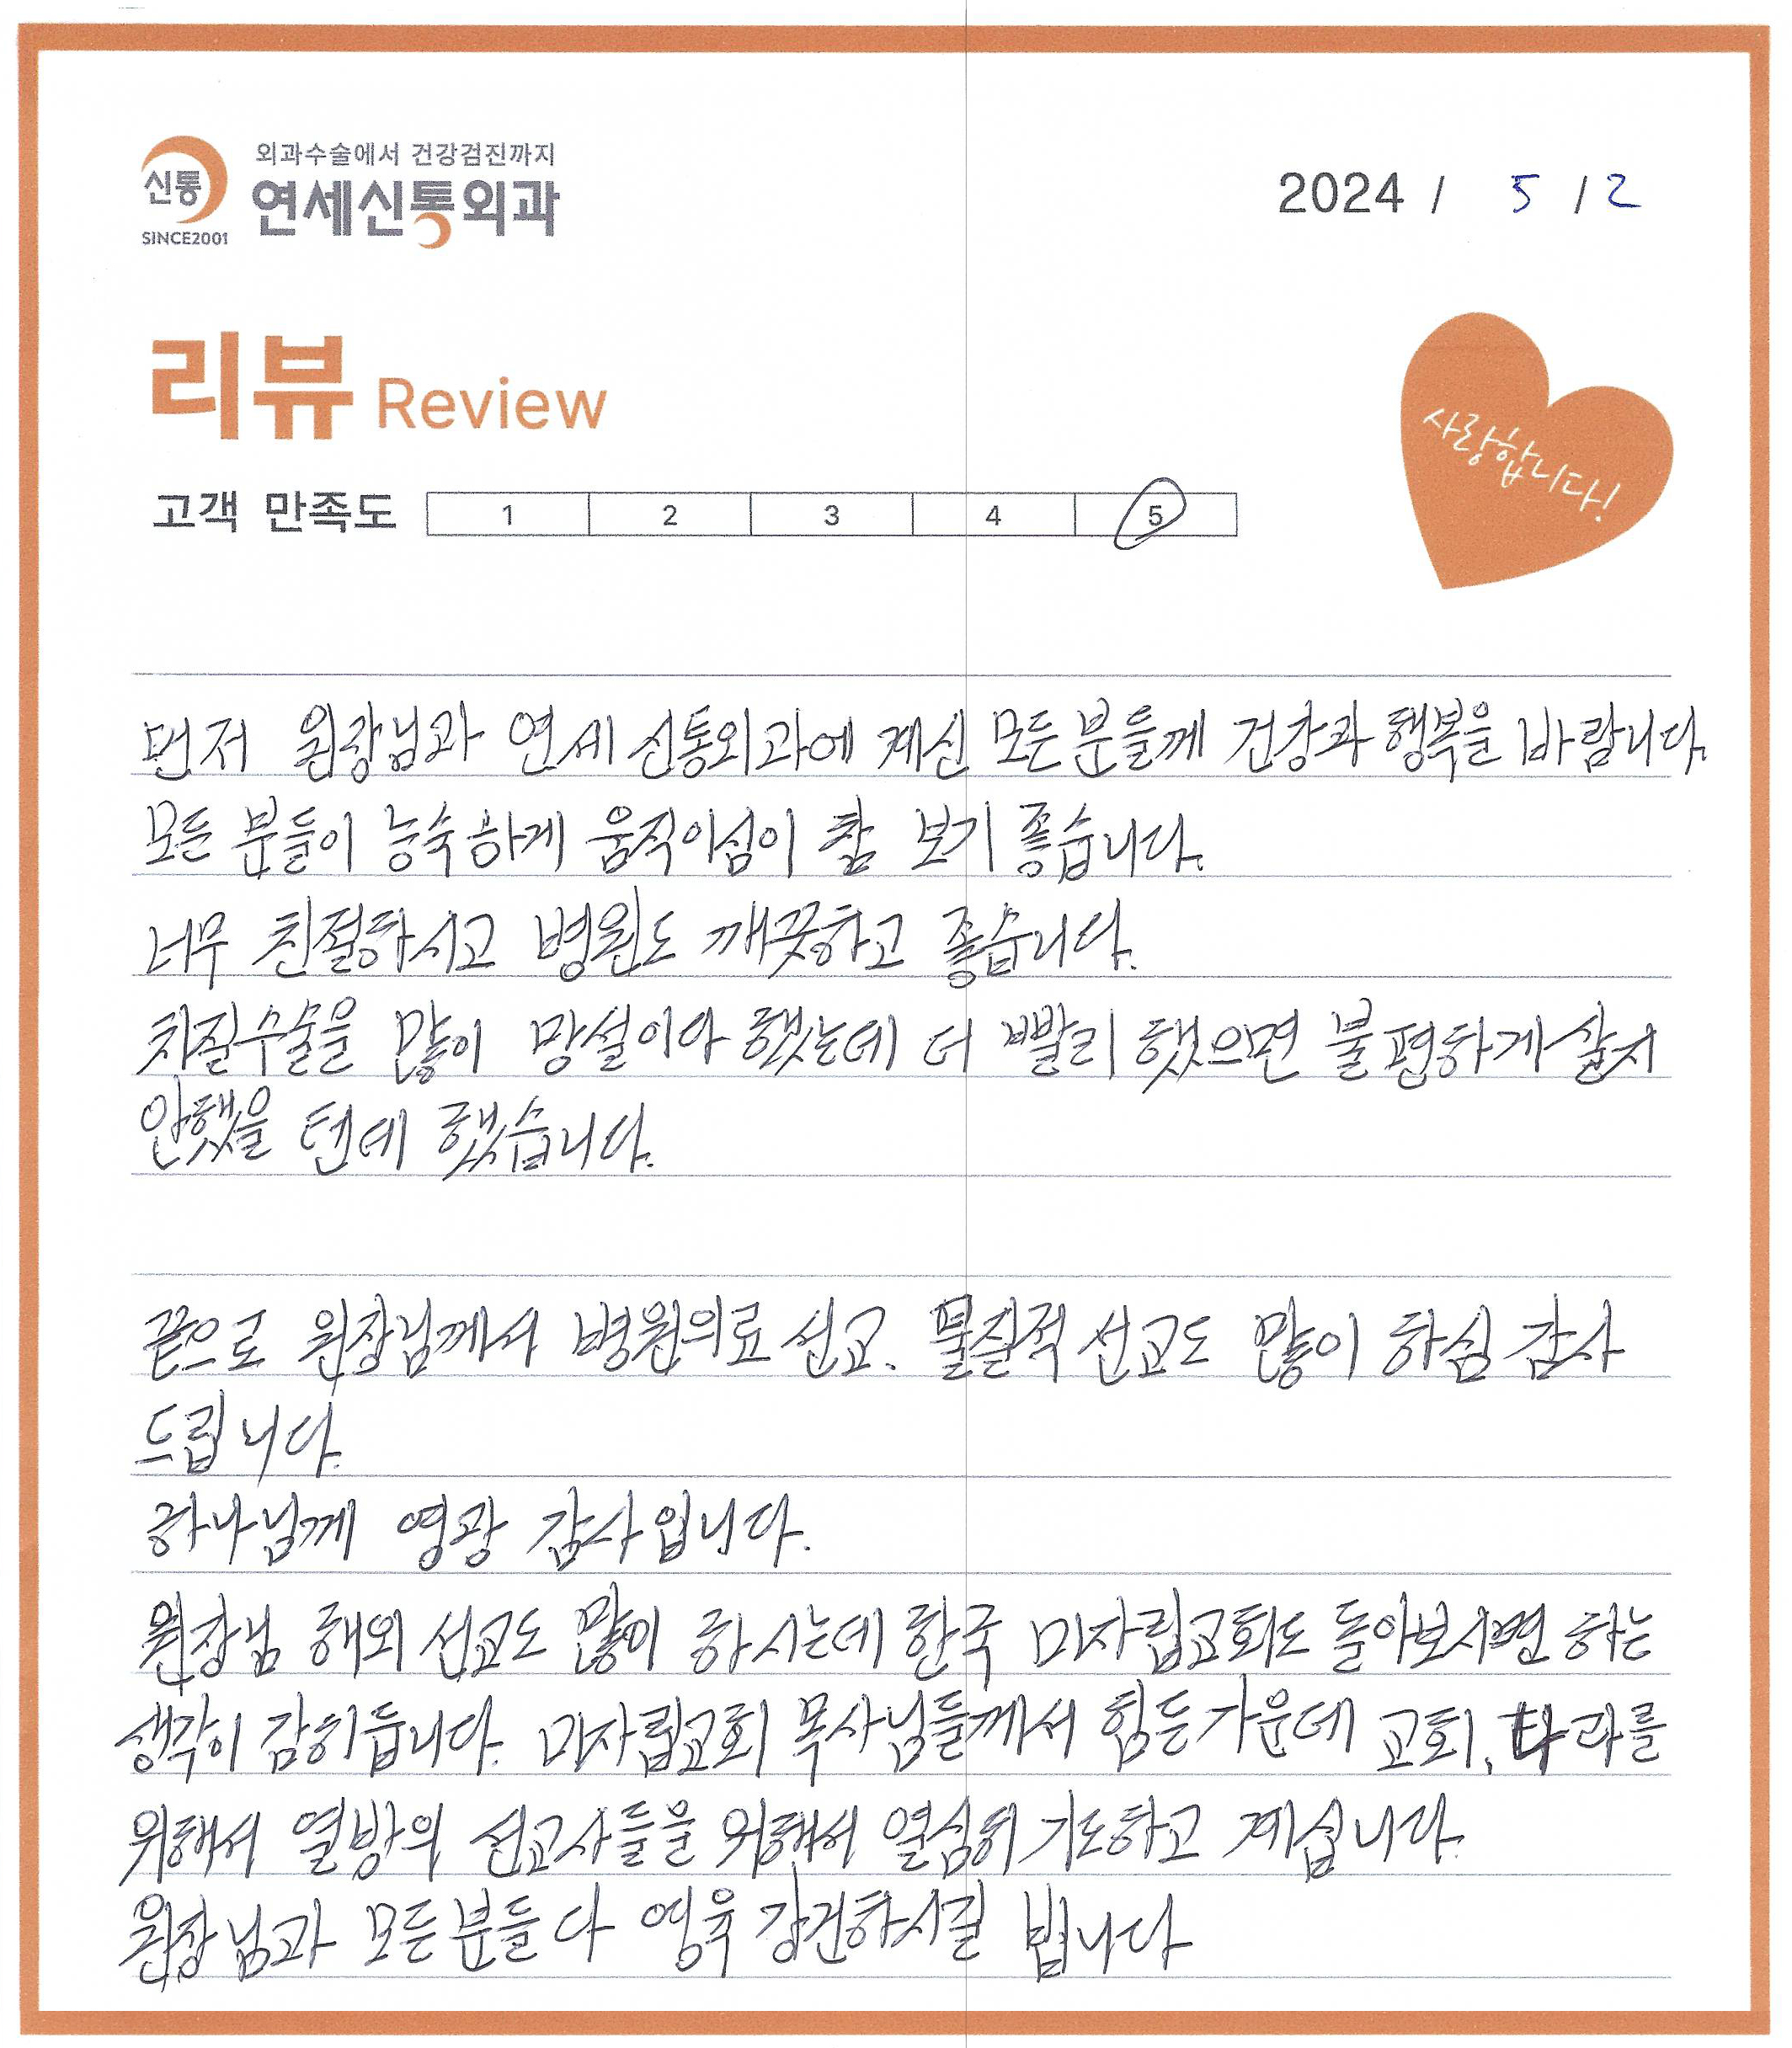 신통
SINCE2001
외과수술에서 건강검진까지
연세신통외과
2024 / 5 / 2
리뷰 Review
사랑합니다!
고객 만족도 1 2 3 4 5
먼저 원장님과 연세 신통외과에 계신 모든 분들께 건강과 행복을 바랍니다.
모든 분들이 능숙하게 움직이심이 참 보기 좋습니다.
너무 친절하시고 병원도 깨끗하고 좋습니다.
치질수술을 많이 망설이야 했는데 더 빨리 했으면 불편하게 살지
안했을 텐데 했습니다.
끝으로 원장님께서 병원의료 선교. 물질적 선교도 많이 하심 감사
드립니다.
하나님께 영광 감사입니다.
원장님 해외 선교도 많이 하시는데 한국 미자립교회도 돌아보시면 하는
생각이 감히 듭니다. 미자립교회 목사님들께서 힘든 가운데 교회, 나라를
위해서 열방의 선교사들을 위해서 열심히 기도하고 계십니다.
원장님과 모든 분들 다 영육 강건하시길 빕니다